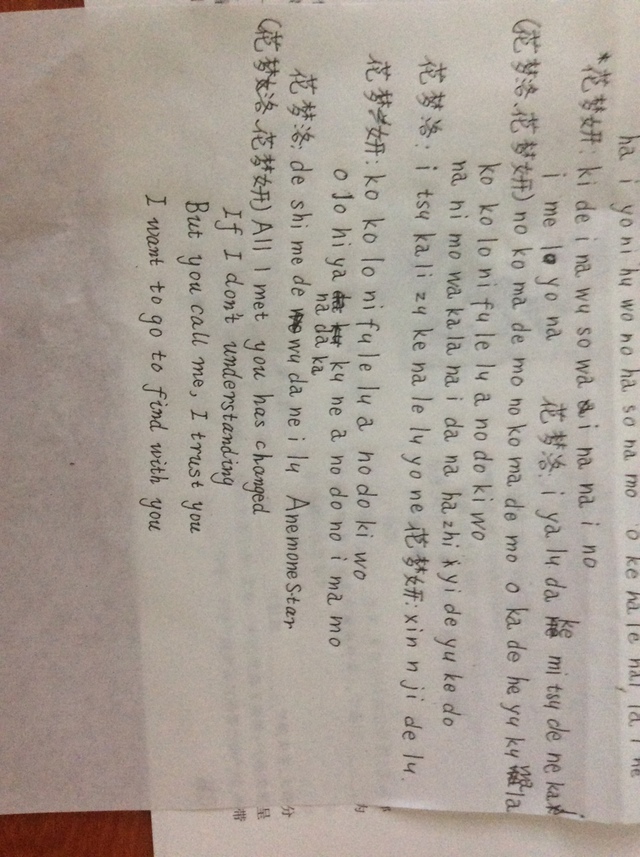 ha i yo ni hu wo no ha so na mo o ke na le na i, la i ne
*花梦妍: ki de i na wu so wa i na na i no
i me lo yo na 花梦洛: i ya lu da ke mi tsu de ne kai
(花梦洛、花梦妍) no ko ma de mo no ko ma de mo o ka de he yu ku wa la
ko ko lo ni fu le lu a no do ki wo
na ni mo wa ka la na i da na ha zhi yi de yu ke do
花梦洛: i tsu ka li zu ke na le lu yo ne 花梦妍: xin n ji de lu.
花梦妍: ko ko lo ni fu le lu a no do ki wo
o jo hi ya na da ka ku ne a no do no i ma mo
花梦洛: de shi me de wu da ne i lu AnemoneStar
(花梦洛、花梦妍) All I met you has changed
If I don't understanding
But you call me, I trust you
I want to go to find with you